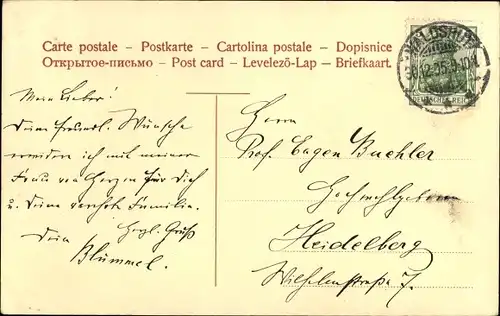 Carte postale – Postkarte – Cartolina postale – Dopisnice
Открытое-письмо – Post card – Levelező-Lap – Briefkaart.
WALDSHUT
DEUTSCHES REICH
Mein Lieber!
Deine freundl. Wünsche
erwidern ich mit meiner
Frau von Herzen für Dich
u. Deine verehrte Familie.
Herzl. Gruß
Dein
Blümmel.
Herrn
Prof. Eugen Buchler
Hochwohlgeboren
Heidelberg
Wilhelmstraße 7.